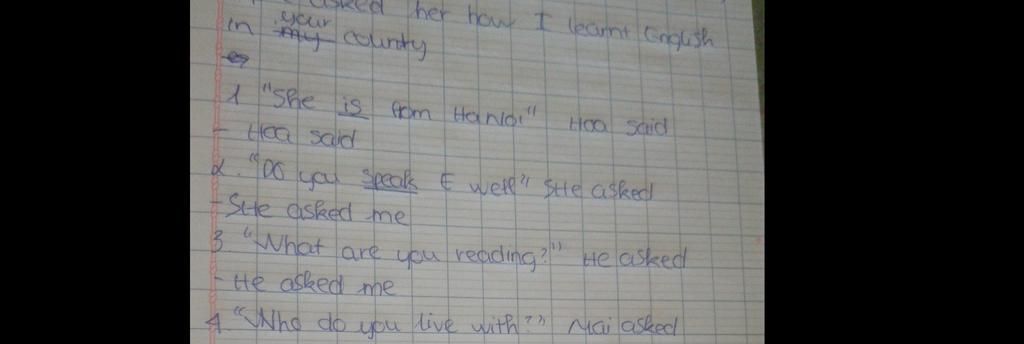 asked her how I learnt English
your
in my county
1 "She is from Hanoi" Hoa said
- Hoa said
2. "Do you speak E well" SHe asked
- SHe asked me
3 "What are you reading?" He asked
- He asked me
4. "Who do you live with?" Mai asked